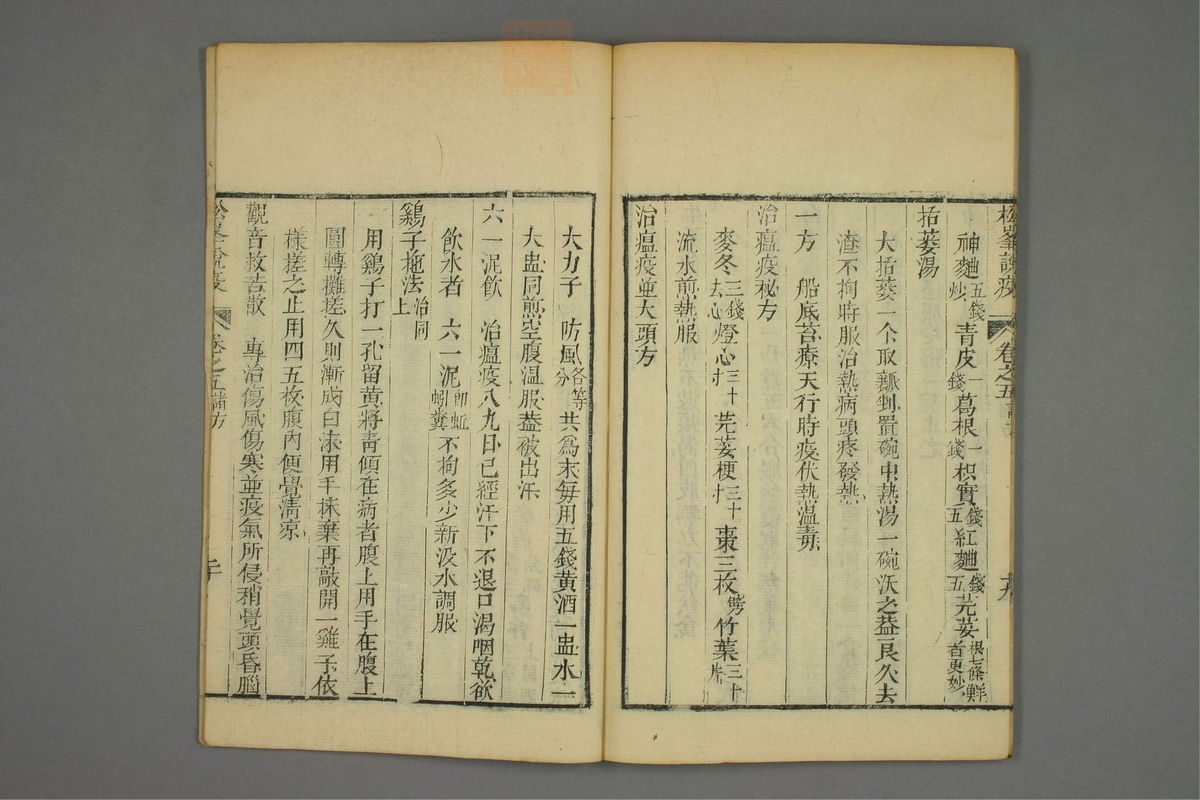 松峯說疫 卷之五 十九
神麯五錢炒 青皮一錢 葛根一錢 枳實五錢 紅麯五錢 芫荽根七條鮮者更妙
括蔞湯
大括蔞一个取瓤剉置碗中熱湯一碗沃之葢良久去
渣不拘時服治熱病頭疼發熱
一方 船底苔療天行時疫伏熱温毒
治瘟疫秘方
麥冬三錢去心 燈心三十寸 芫荽梗三十寸 棗三枚劈 竹葉三十片
流水煎熱服
治瘟疫並大頭方
大力子 防風各等分 共為末每用五錢黄酒一盅水一
大盅同煎空腹温服葢被出汗
六一泥飲 治瘟疫八九日已經汗下不退口渴咽乾欲
飲水者 六一泥即蚯蚓糞 不拘多少新汲水調服
鷄子拖法治同上
用鷄子打一孔留黄將青傾在病者腹上用手在腹上
圑轉攤搓久則漸成白沫用手抹棄再敲開一雞子依
樣搓之止用四五枚腹內便覺清凉
觀音救苦散 專治傷風傷寒並疫氣所侵稍覺頭昏腦
松峯說疫 卷之五諸方 二十